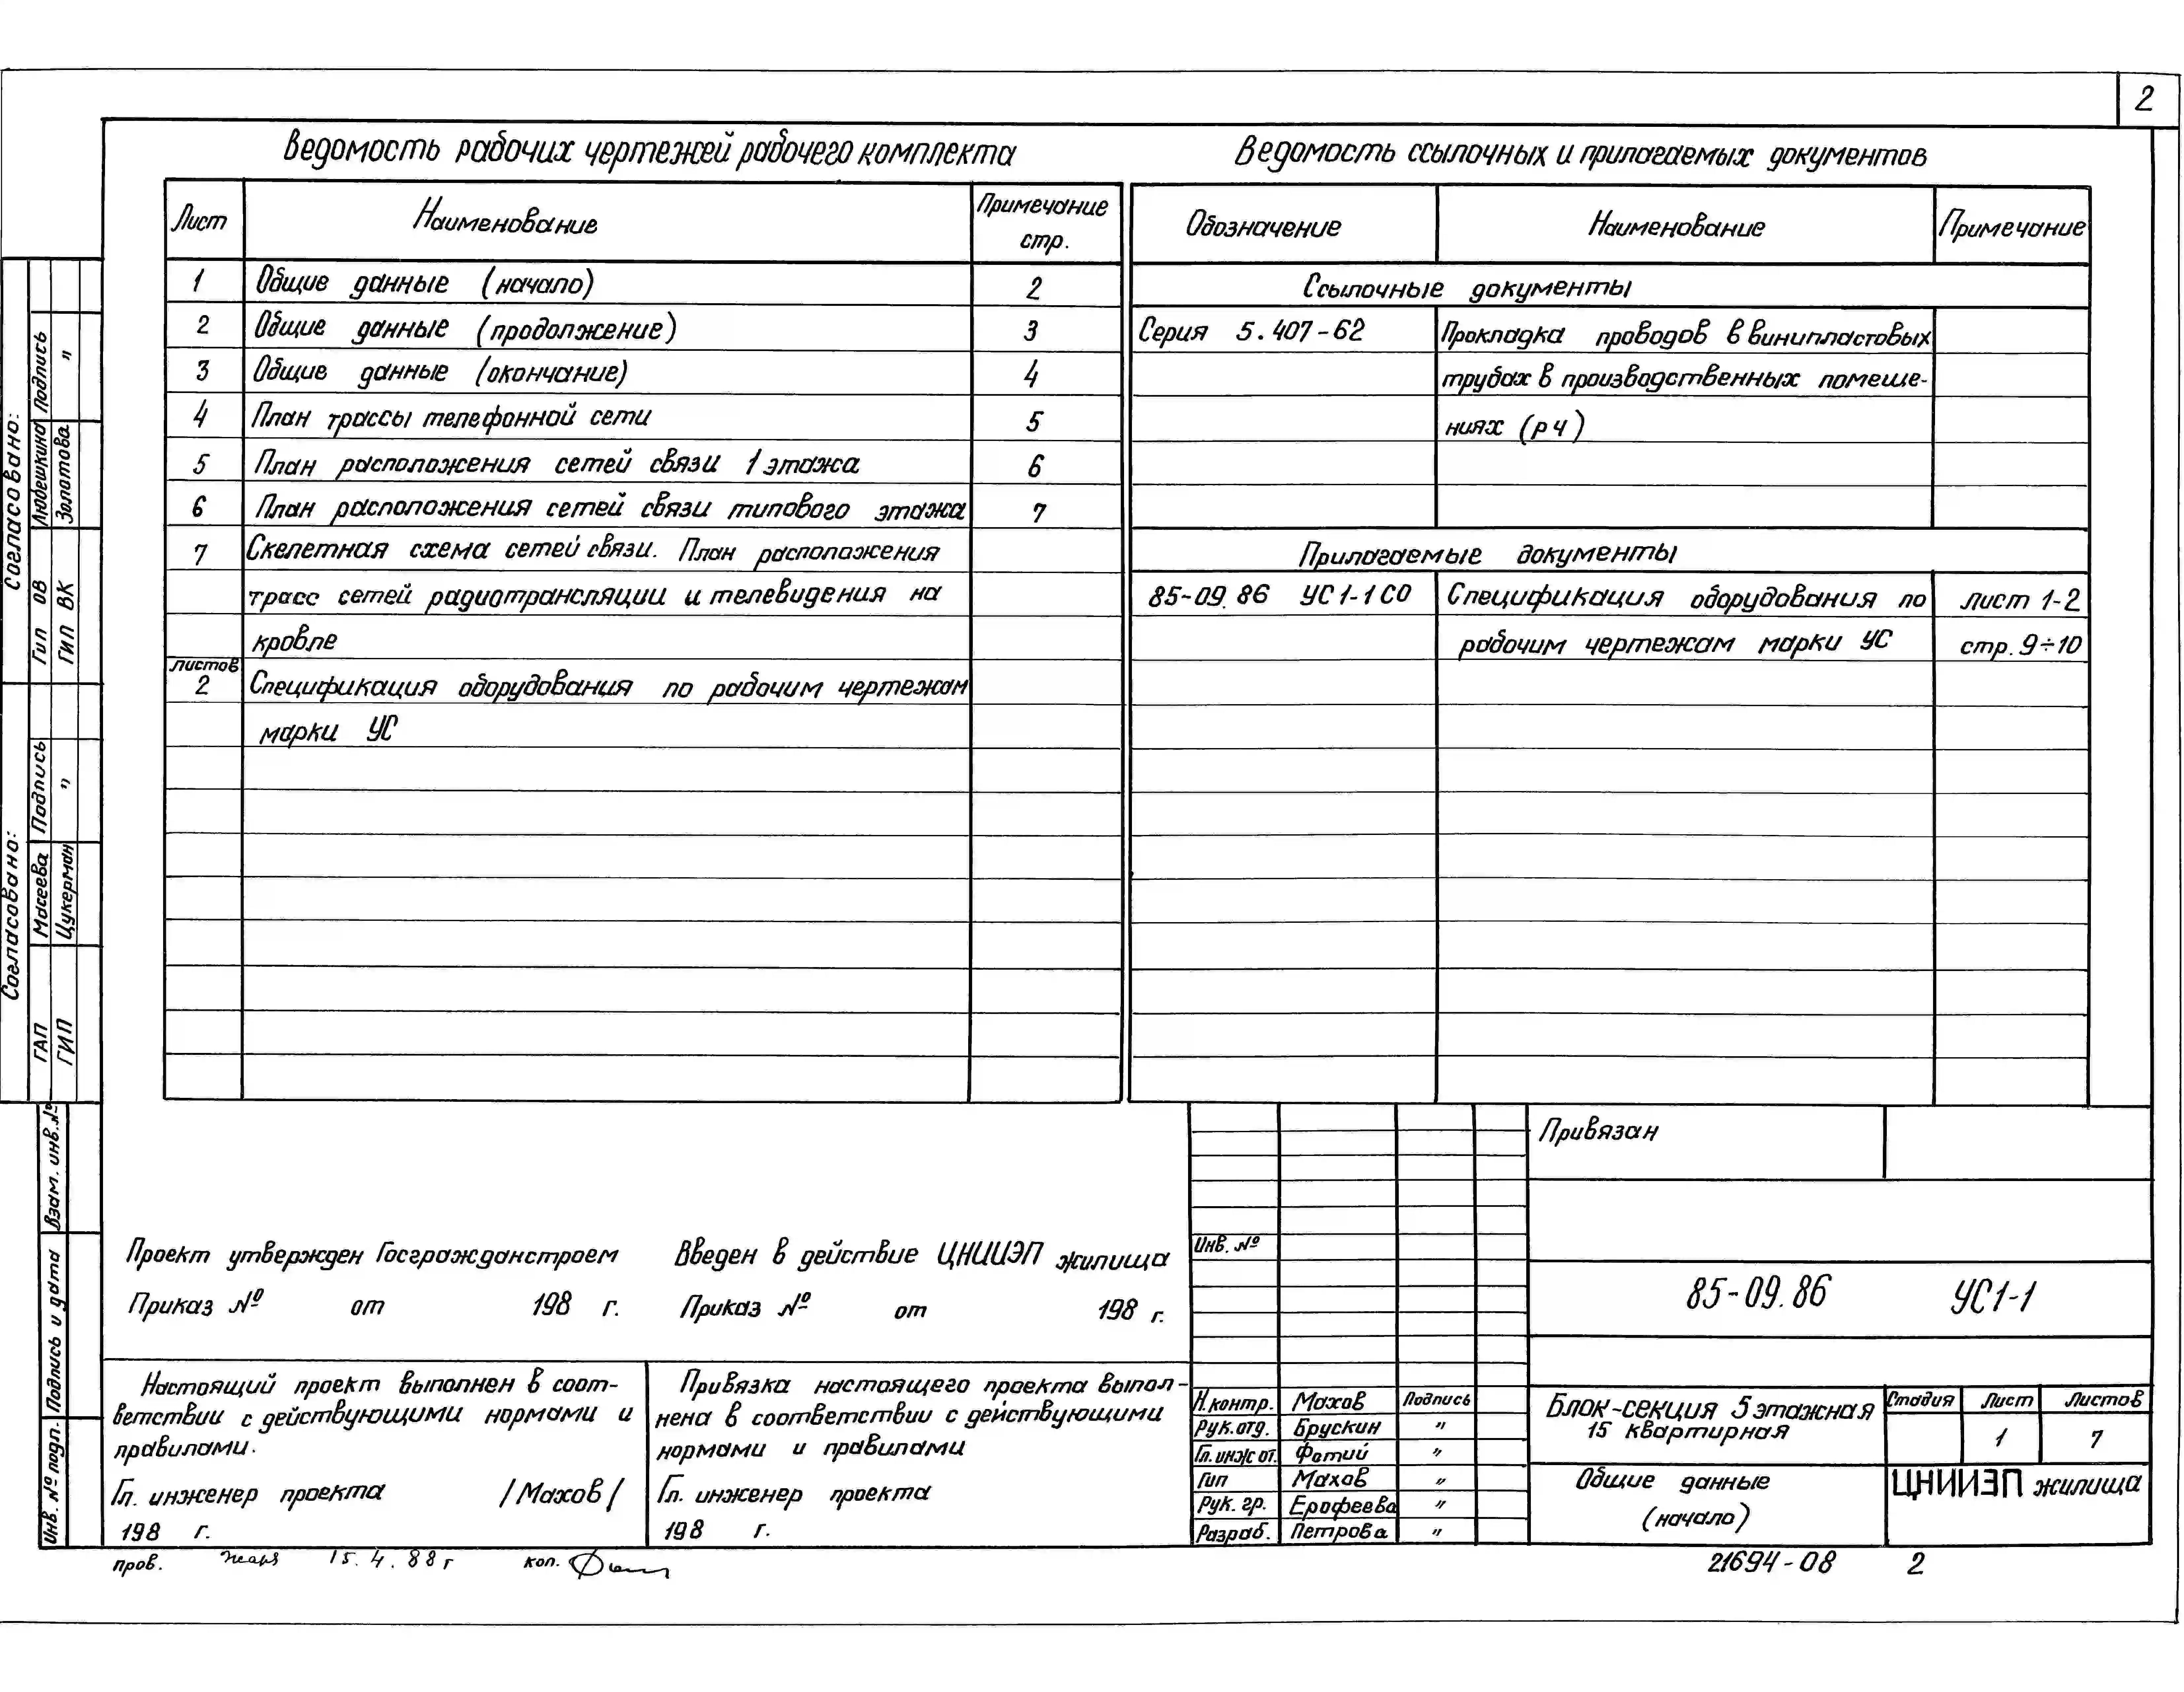 2
Ведомость рабочих чертежей рабочего комплекта
Лист Наименование Примечание стр.
1 Общие данные (начало) 2
2 Общие данные (продолжение) 3
3 Общие данные (окончание) 4
4 План трассы телефонной сети 5
5 План расположения сетей связи 1 этажа 6
6 План расположения сетей связи типового этажа 7
7 Скелетная схема сетей связи. План расположения
трасс сетей радиотрансляции и телевидения на
кровле
листов
2 Спецификация оборудования по рабочим чертежам
марки УС
Ведомость ссылочных и прилагаемых документов
Обозначение Наименование Примечание
Ссылочные документы
Серия 5.407-62 Прокладка проводов в винипластовых
трубах в производственных помеще-
ниях (рч)
Прилагаемые документы
85-09.86 УС1-1СО Спецификация оборудования по лист 1-2
рабочим чертежам марки УС стр. 9÷10
Согласовано:
Гип ОВ Любешкина Подпись
ГИП ВК Золотова "
Согласовано:
ГАП Масеева Подпись
ГИП Цукерман "
Взам. инв. №
Подпись и дата
Инв. № подл.
Проект утвержден Госгражданстроем
Приказ № от 198 г.
Введен в действие ЦНИИЭП жилища
Приказ № от 198 г.
Настоящий проект выполнен в соот-
ветствии с действующими нормами и
правилами.
Гл. инженер проекта /Махов/
198 г.
Привязка настоящего проекта выпол-
нена в соответствии с действующими
нормами и правилами
Гл. инженер проекта
198 г.
Инв. №
Н.контр. Махов Подпись
Рук.отд. Брускин "
Гл.инж от. Фотий "
Гип Махов "
Рук. гр. Ерофеева "
Разраб. Петрова "
Привязан
85-09.86 УС1-1
Блок-секция 5 этажная
15 квартирная
Стадия Лист Листов
1 7
Общие данные
(начало)
ЦНИИЭП жилища
пров. 15.4.88г кол.
21694-08 2